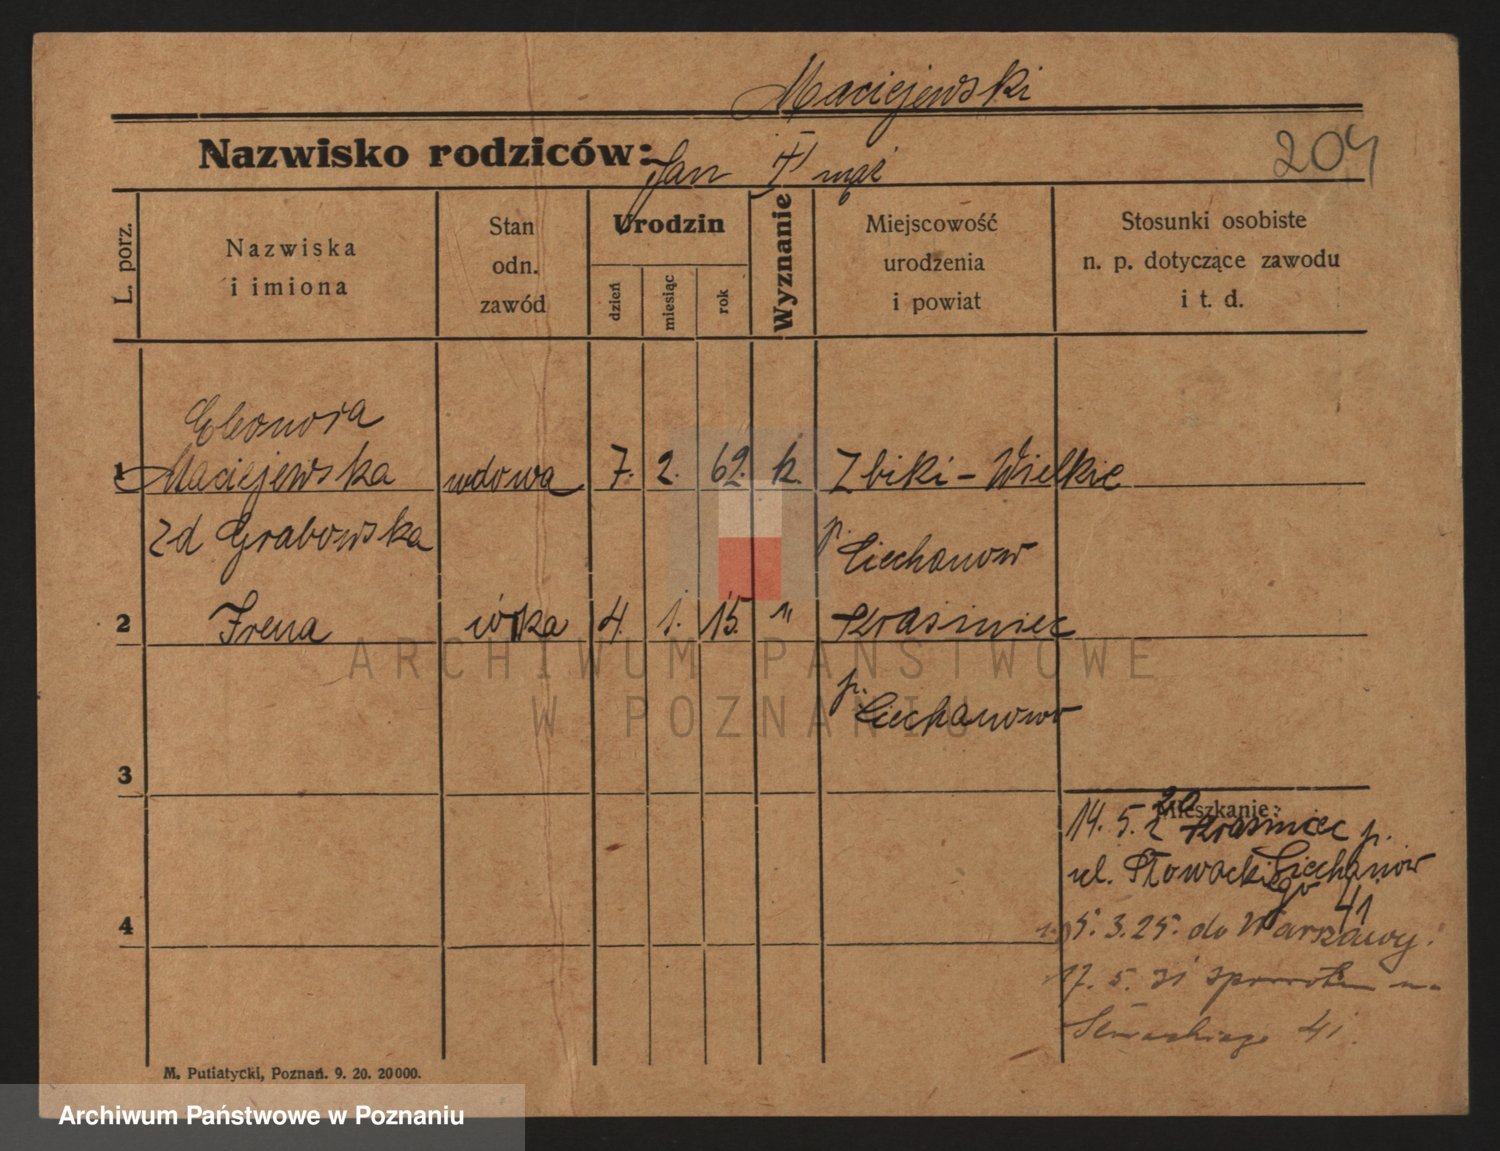 Maciejewski
Nazwisko rodziców: Jan † mąż
204
L. porz.
Nazwiska
i imiona
Stan
odn.
zawód
Urodzin
dzień
miesiąc
rok
Wyznanie
Miejscowość
urodzenia
i powiat
Stosunki osobiste
n. p. dotyczące zawodu
i t. d.
Eleonora
1 Maciejewska wdowa 7. 2. 62. k. Zbiki - Wielkie
zd Grabowska p. Ciechanow
2 Irena córka 4. 1. 15. " Krasiniec
p. Ciechanowo
3
Mieszkanie:
14. 5. 20 z Krasiniec p.
ul. Słowackiego Ciechanów
41
4
5. 3. 25. do Warszawy.
17. 5. 31 spowrotem
Słowackiego 41.
M. Putiatycki, Poznań. 9. 20. 20000.
ARCHIWUM PAŃSTWOWE
W POZNANIU
Archiwum Państwowe w Poznaniu